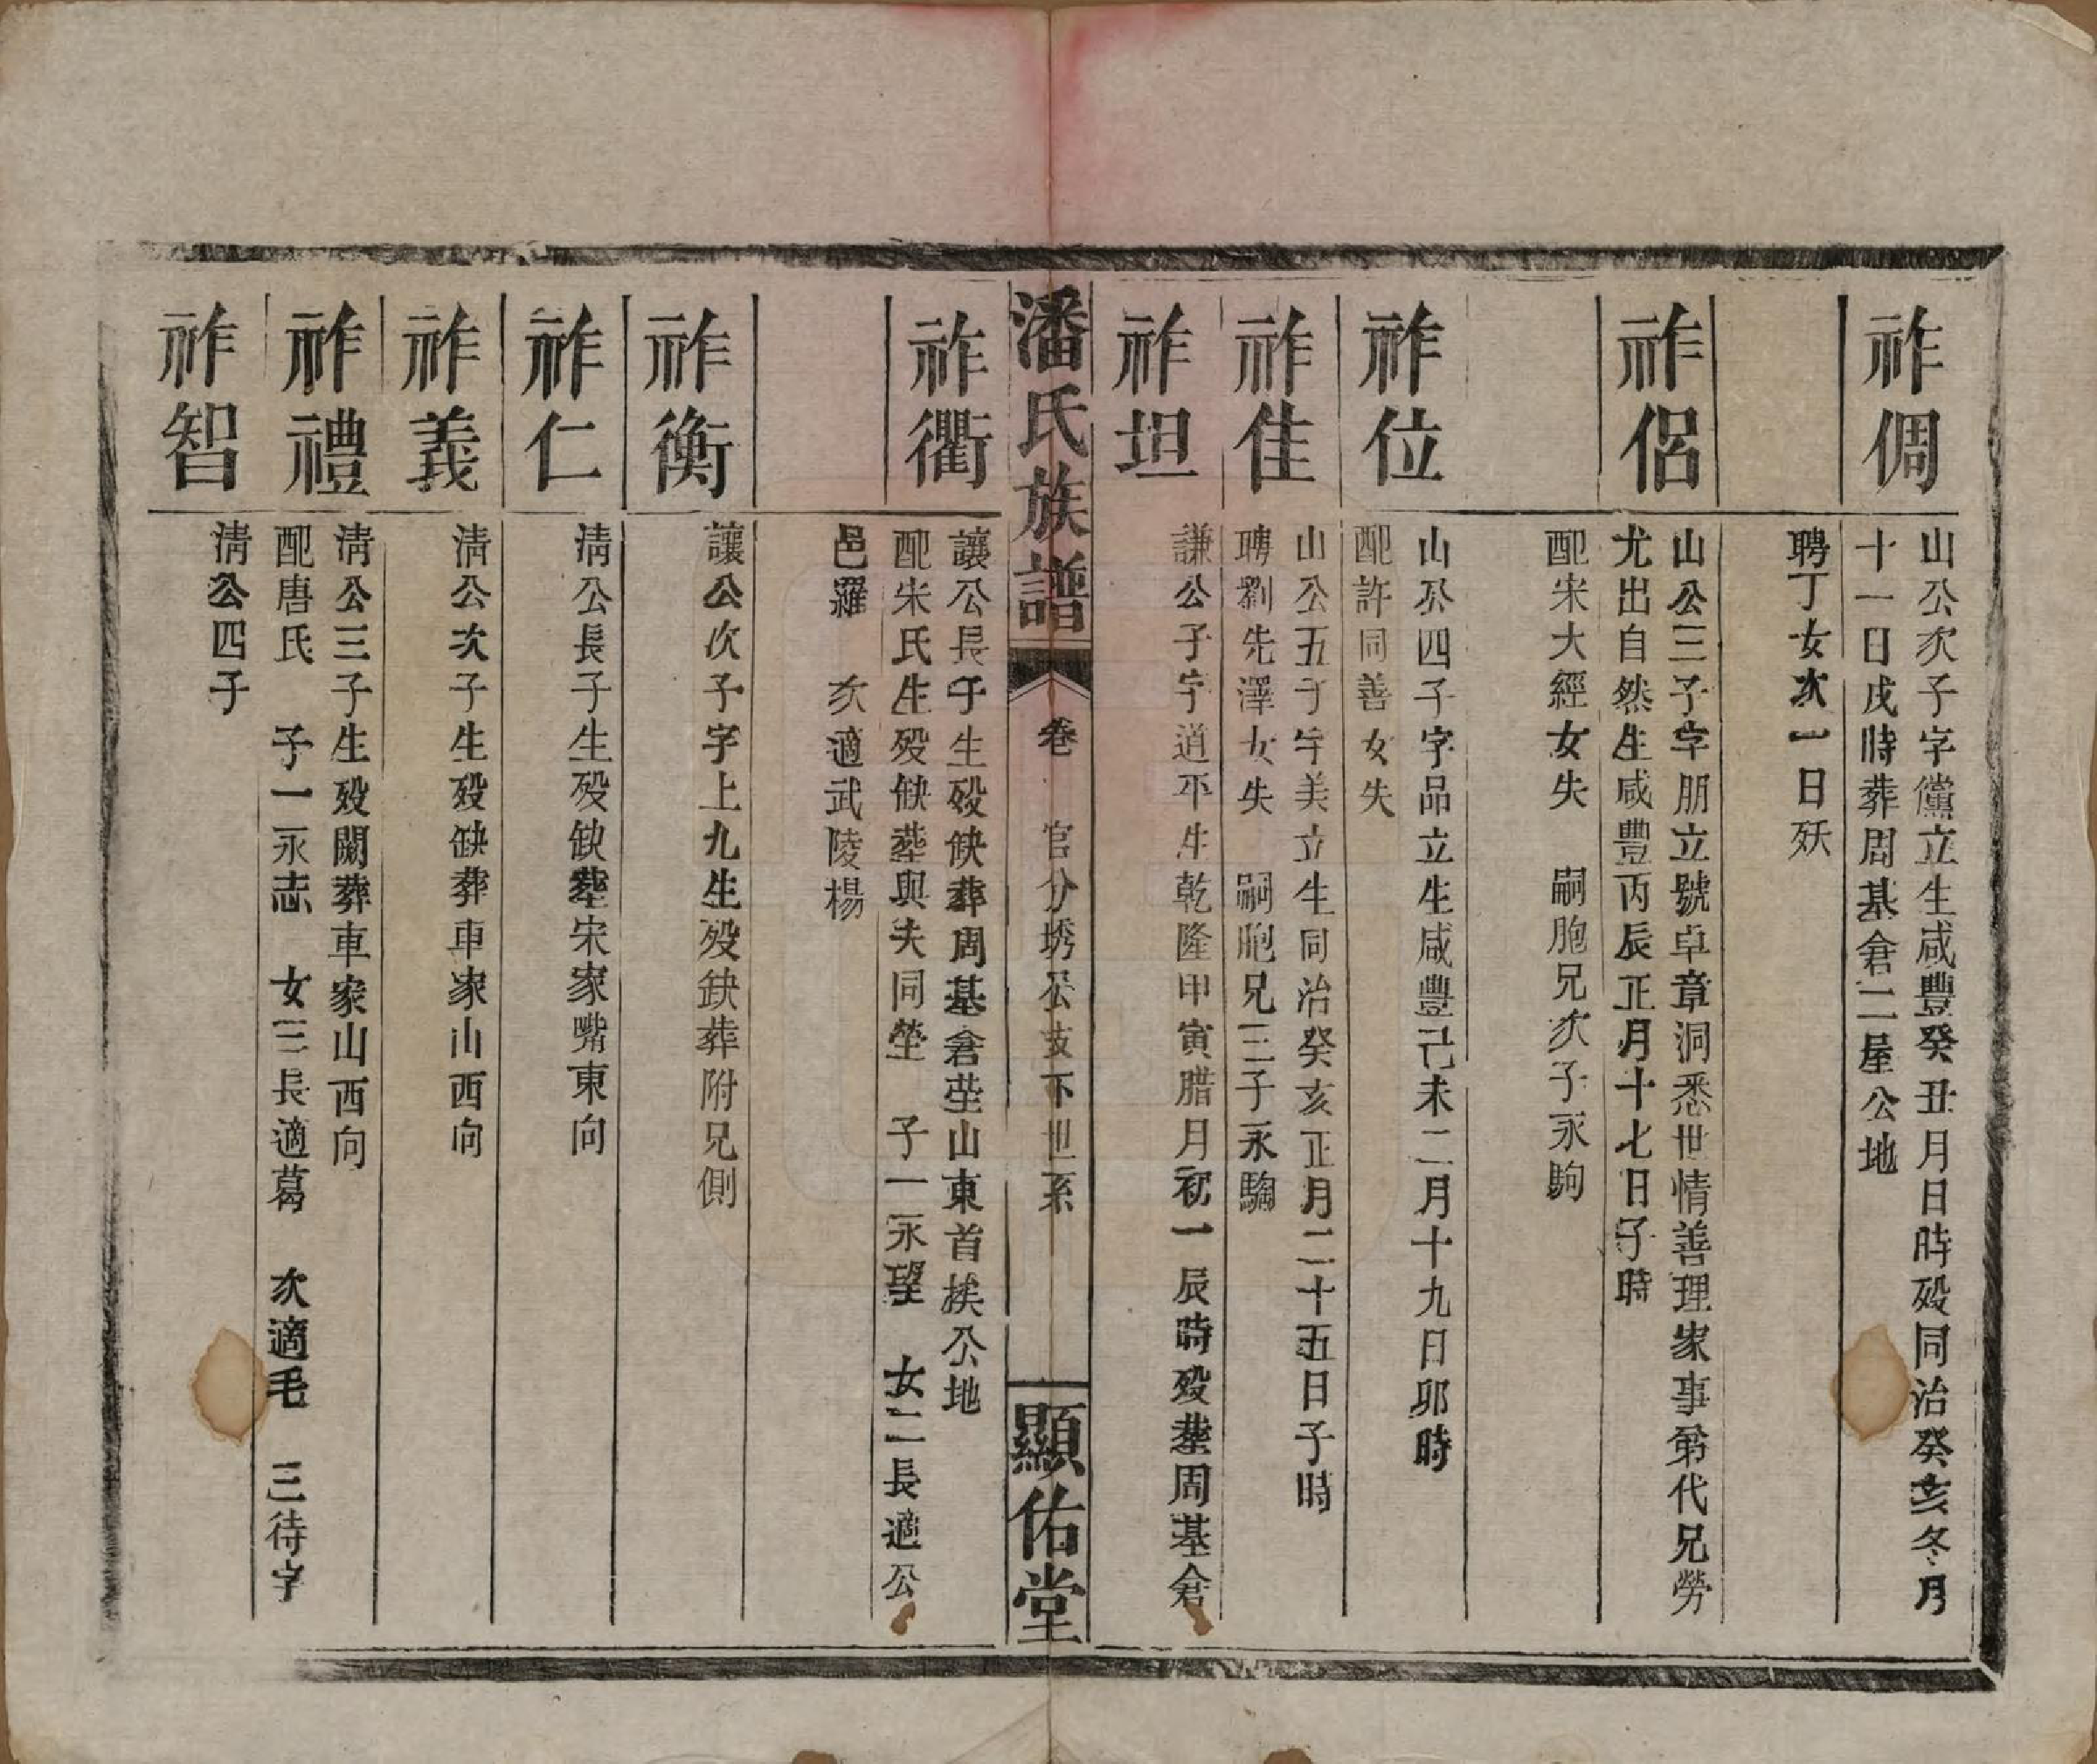 祚倜
山公次子字儻立生咸豐癸丑月日時殁同治癸亥冬月
十一日戌時葬周基倉二屋公地
聘丁女次一日殀
祚侶
山公三子字朋立號卓章洞悉世情善理家事弟代兄勞
尤出自然生咸豐丙辰正月十七日子時
配宋大經女失 嗣胞兄次子永駒
祚位
山公四子字品立生咸豐己未二月十九日卯時
配許同善女失
祚佳
山公五子字美立生同治癸亥正月二十五日子時
聘劉先澤女失 嗣胞兄三子永騊
祚坦
謙公子字道平生乾隆甲寅腊月初一辰時殁塟周基倉
潘氏族譜
卷 官分琇公支下世系
顯佑堂
祚衢
讓公長子生殁缺葬周基倉塋山東首挨公地
配宋氏生殁缺塟與夫同塋 子一永望 女二長適公
邑羅 次適武陵楊
祚衡
讓公次子字上九生殁缺葬附兄側
祚仁
淸公長子生殁缺塟宋家嘴東向
祚義
淸公次子生殁缺葬車家山西向
祚禮
淸公三子生殁闕葬車家山西向
配唐氏 子一永志 女三長適葛 次適毛 三待字
祚智
淸公四子